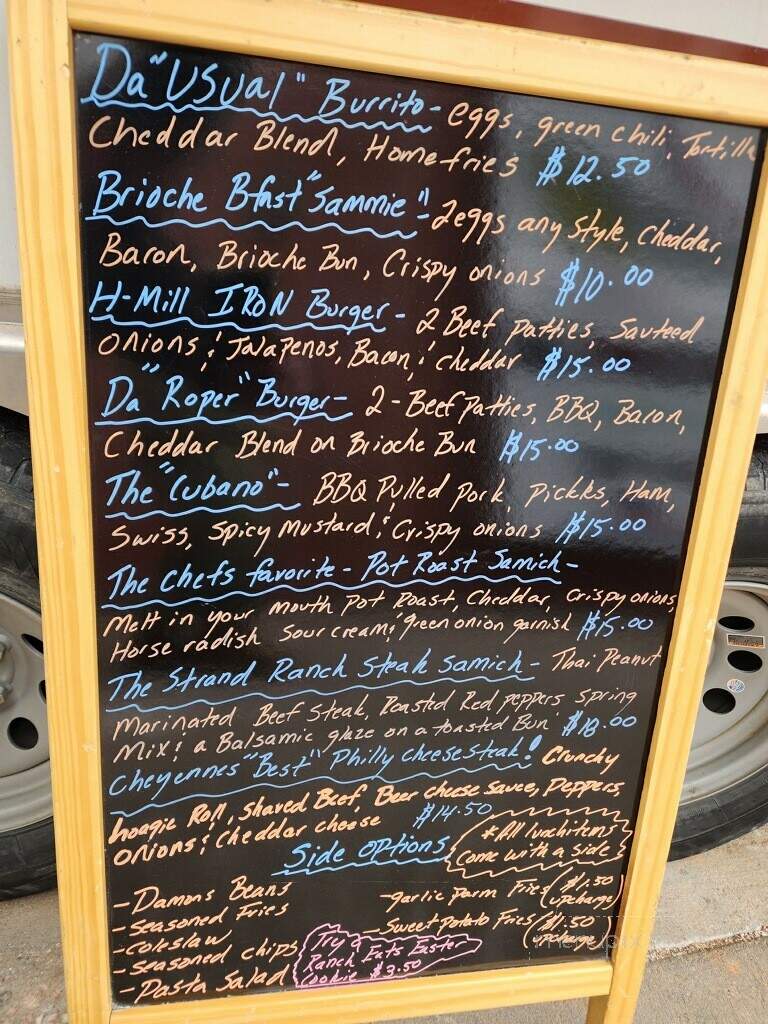 Da "USUal" Burrito- eggs, green chili, Tortilla
Cheddar Blend, Homefries $12.50
Brioche Bfast "Sammie"- 2eggs any style, cheddar,
Bacon, Brioche Bun, Crispy onions $10.00
H-Mill IRON Burger- 2 Beef patties, Sauteed
onions & Jalapenos, Bacon & cheddar $15.00
Da "Roper" Burger- 2-Beef Patties, BBQ, Bacon,
Cheddar Blend on Brioche Bun $15.00
The "Cubano"- BBQ Pulled Pork, Pickles, Ham,
Swiss, Spicy Mustard & Crispy onions $15.00
The chefs favorite - Pot Roast Samich-
Melt in your mouth Pot Roast, Cheddar, Crispy onions,
Horse radish Sour cream & green onion garnish $15.00
The Strand Ranch Steak Samich- Thai Peanut
Marinated Beef Steak, Roasted Red peppers, Spring
Mix & a Balsamic glaze on a toasted Bun $18.00
Cheyennes "Best" Philly cheesesteak! Crunchy
hoagie Roll, Shaved Beef, Beer cheese sauce, Peppers,
onions & Cheddar cheese $14.50
*All lunch items
come with a side
Side Options
-Damons Beans
-Seasoned Fries
-Coleslaw
-Seasoned chips
-Pasta Salad
-garlic Parm Fries ($1.50
upcharge)
-Sweet Potato Fries ($1.50
upcharge)
Try a
Ranch Eats Easter
Cookie $3.50